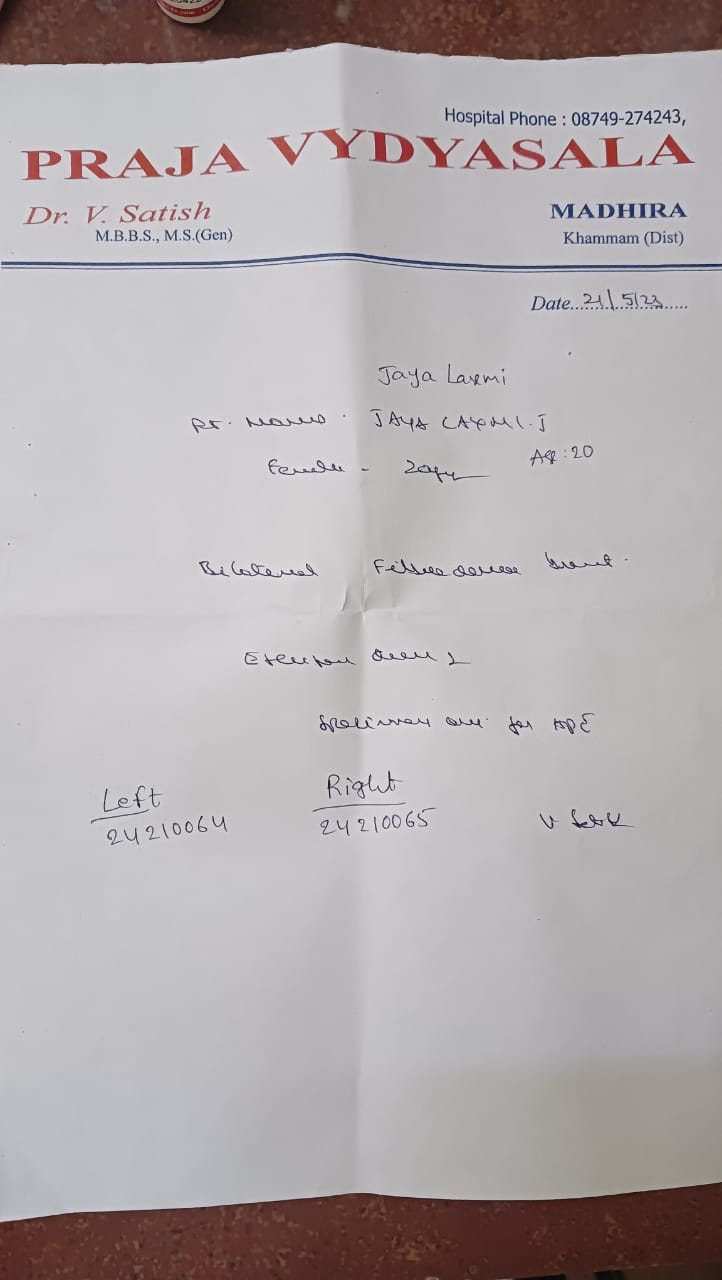 Hospital Phone : 08749-274243,
PRAJA VYDYASALA
Dr. V. Satish
M.B.B.S., M.S.(Gen)
MADHIRA
Khammam (Dist)
Date 21/5/23
Jaya Laxmi
Pt. Name : JAYA LAXMI.J
Female - 20
Age : 20
Bilateral
Specimen for HPE
Left
24210064
Right
24210065